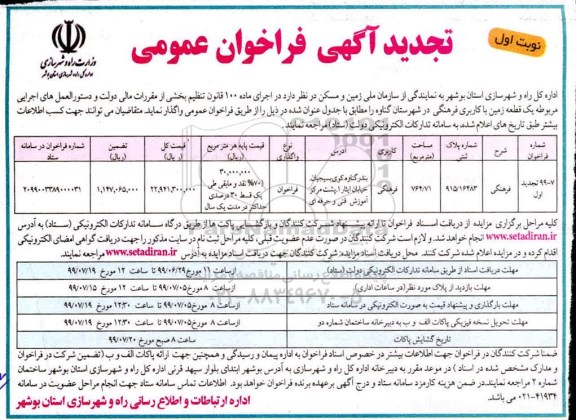 نوبت اول
تجدید آگهی فراخوان عمومی
وزارت راه و شهرسازی
اداره کل راه و شهرسازی استان بوشهر
اداره کل راه و شهرسازی استان بوشهر به نمایندگی از سازمان ملی زمین و مسکن در نظر دارد در اجرای ماده ۱۰۰ قانون تنظیم بخشی از مقررات مالی دولت و دستورالعمل های اجرایی
مربوطه یک قطعه زمین با کاربری فرهنگی در شهرستان گناوه را مطابق با جدول عنوان شده در ذیل را از طریق فراخوان عمومی واگذار نماید. متقاضیان می توانند جهت کسب اطلاعات
بیشتر طبق تاریخ های اعلام شده، به سامانه تدارکات الکترونیکی دولت (ستاد) مراجعه نمایند
شماره فراخوان	شرح	شماره پلاک ثبتی	مساحت (مترمربع)	کاربری	آدرس	نوع واگذاری	قیمت پایه هر متر مربع (ریال)	قیمت کل (ریال)	تضمین (ریال)	شماره فراخوان در سامانه ستاد
۹۹-۷ تجدید اول	فرهنگی	۹۱۵/۱۶۴۸۳	۷۶۴/۷۱	فرهنگی	بندرگناوه کوی بسیجیان خیابان ایثار ۱ پشت مرکز آموزش فنی و حرفه ای	فراخوان	۳۰,۰۰۰,۰۰۰ (۷۰٪ نقد و مابقی طی یک قسط ۳۰ درصدی حداکثر در مدت یک سال	۲۲,۹۴۱,۳۰۰,۰۰۰	۱,۱۴۷,۰۶۵,۰۰۰	۲۰۹۹۰۰۳۳۸۹۰۰۰۰۳۱
کلیه مراحل برگزاری مزایده از دریافت اسناد فراخوان تا ارائه پیشنهاد شرکت کنندگان و بازگشایی پاکت ها از طریق درگاه سامانه تدارکات الکترونیکی (ستاد) به آدرس
www.setadiran.ir انجام خواهد شد. و لازم است شرکت کنندگان در صورت عدم عضویت قبلی، کلیه مراحل ثبت نام در سایت مذکور را جهت دریافت گواهی امضای الکترونیکی
اقدام کرده و در مزایده اعلام شده شرکت کنند. محل دریافت اسناد مزایده: شرکت کنندگان جهت دریافت اسناد مزایده به آدرس www.setadiran.ir مراجعه نمایند
مهلت دریافت اسناد از طریق سامانه تدارکات الکترونیکی دولت (ستاد)	ازساعت ۱۱ مورخ ۹۹/۰۶/۲۹ تا ساعت ۱۲ مورخ ۹۹/۰۷/۱۹
مهلت بازدید از پلاک مورد نظر (در ساعات اداری)	ازساعت ۸ مورخ ۹۹/۰۷/۰۵ تا ساعت ۱۲ مورخ ۹۹/۰۷/۱۵
مهلت بارگذاری و پیشنهاد قیمت به صورت الکترونیکی در سامانه ستاد	ازساعت ۸ مورخ ۹۹/۰۷/۰۵ تا ساعت ۱۲:۳۰ مورخ ۹۹/۰۷/۱۹
مهلت تحویل نسخه فیزیکی پاکات الف و ب به دبیرخانه ساختمان شماره دو	ازساعت ۸ مورخ ۹۹/۰۷/۰۵ تا ساعت ۱۲:۳۰ مورخ ۹۹/۰۷/۱۹
تاریخ گشایش پاکات	ساعت ۸ صبح مورخ ۹۹/۰۷/۲۰
ضمنا شرکت کنندگان در فراخوان جهت اطلاعات بیشتر در خصوص اسناد فراخوان به اداره پیمان و رسیدگی و همچنین جهت ارائه پاکات الف و ب (تضمین شرکت در فراخوان
و مدارک مشخص شده در اسناد) در موعد مقرر به دبیرخانه اداره کل راه و شهرسازی به آدرس بوشهر ابتدای بلوار سپهبد قرنی اداره کل راه و شهرسازی ساختمان
شماره ۲ مراجعه نمایند. در ضمن هزینه کارمزد سامانه ستاد و درج آگهی برعهده برنده فراخوان خواهد بود. اطلاعات تماس سامانه ستاد جهت انجام مراحل عضویت در سامانه
۰۲۱-۴۱۹۳۴ می باشد.
اداره ارتباطات و اطلاع رسانی راه و شهرسازی استان بوشهر